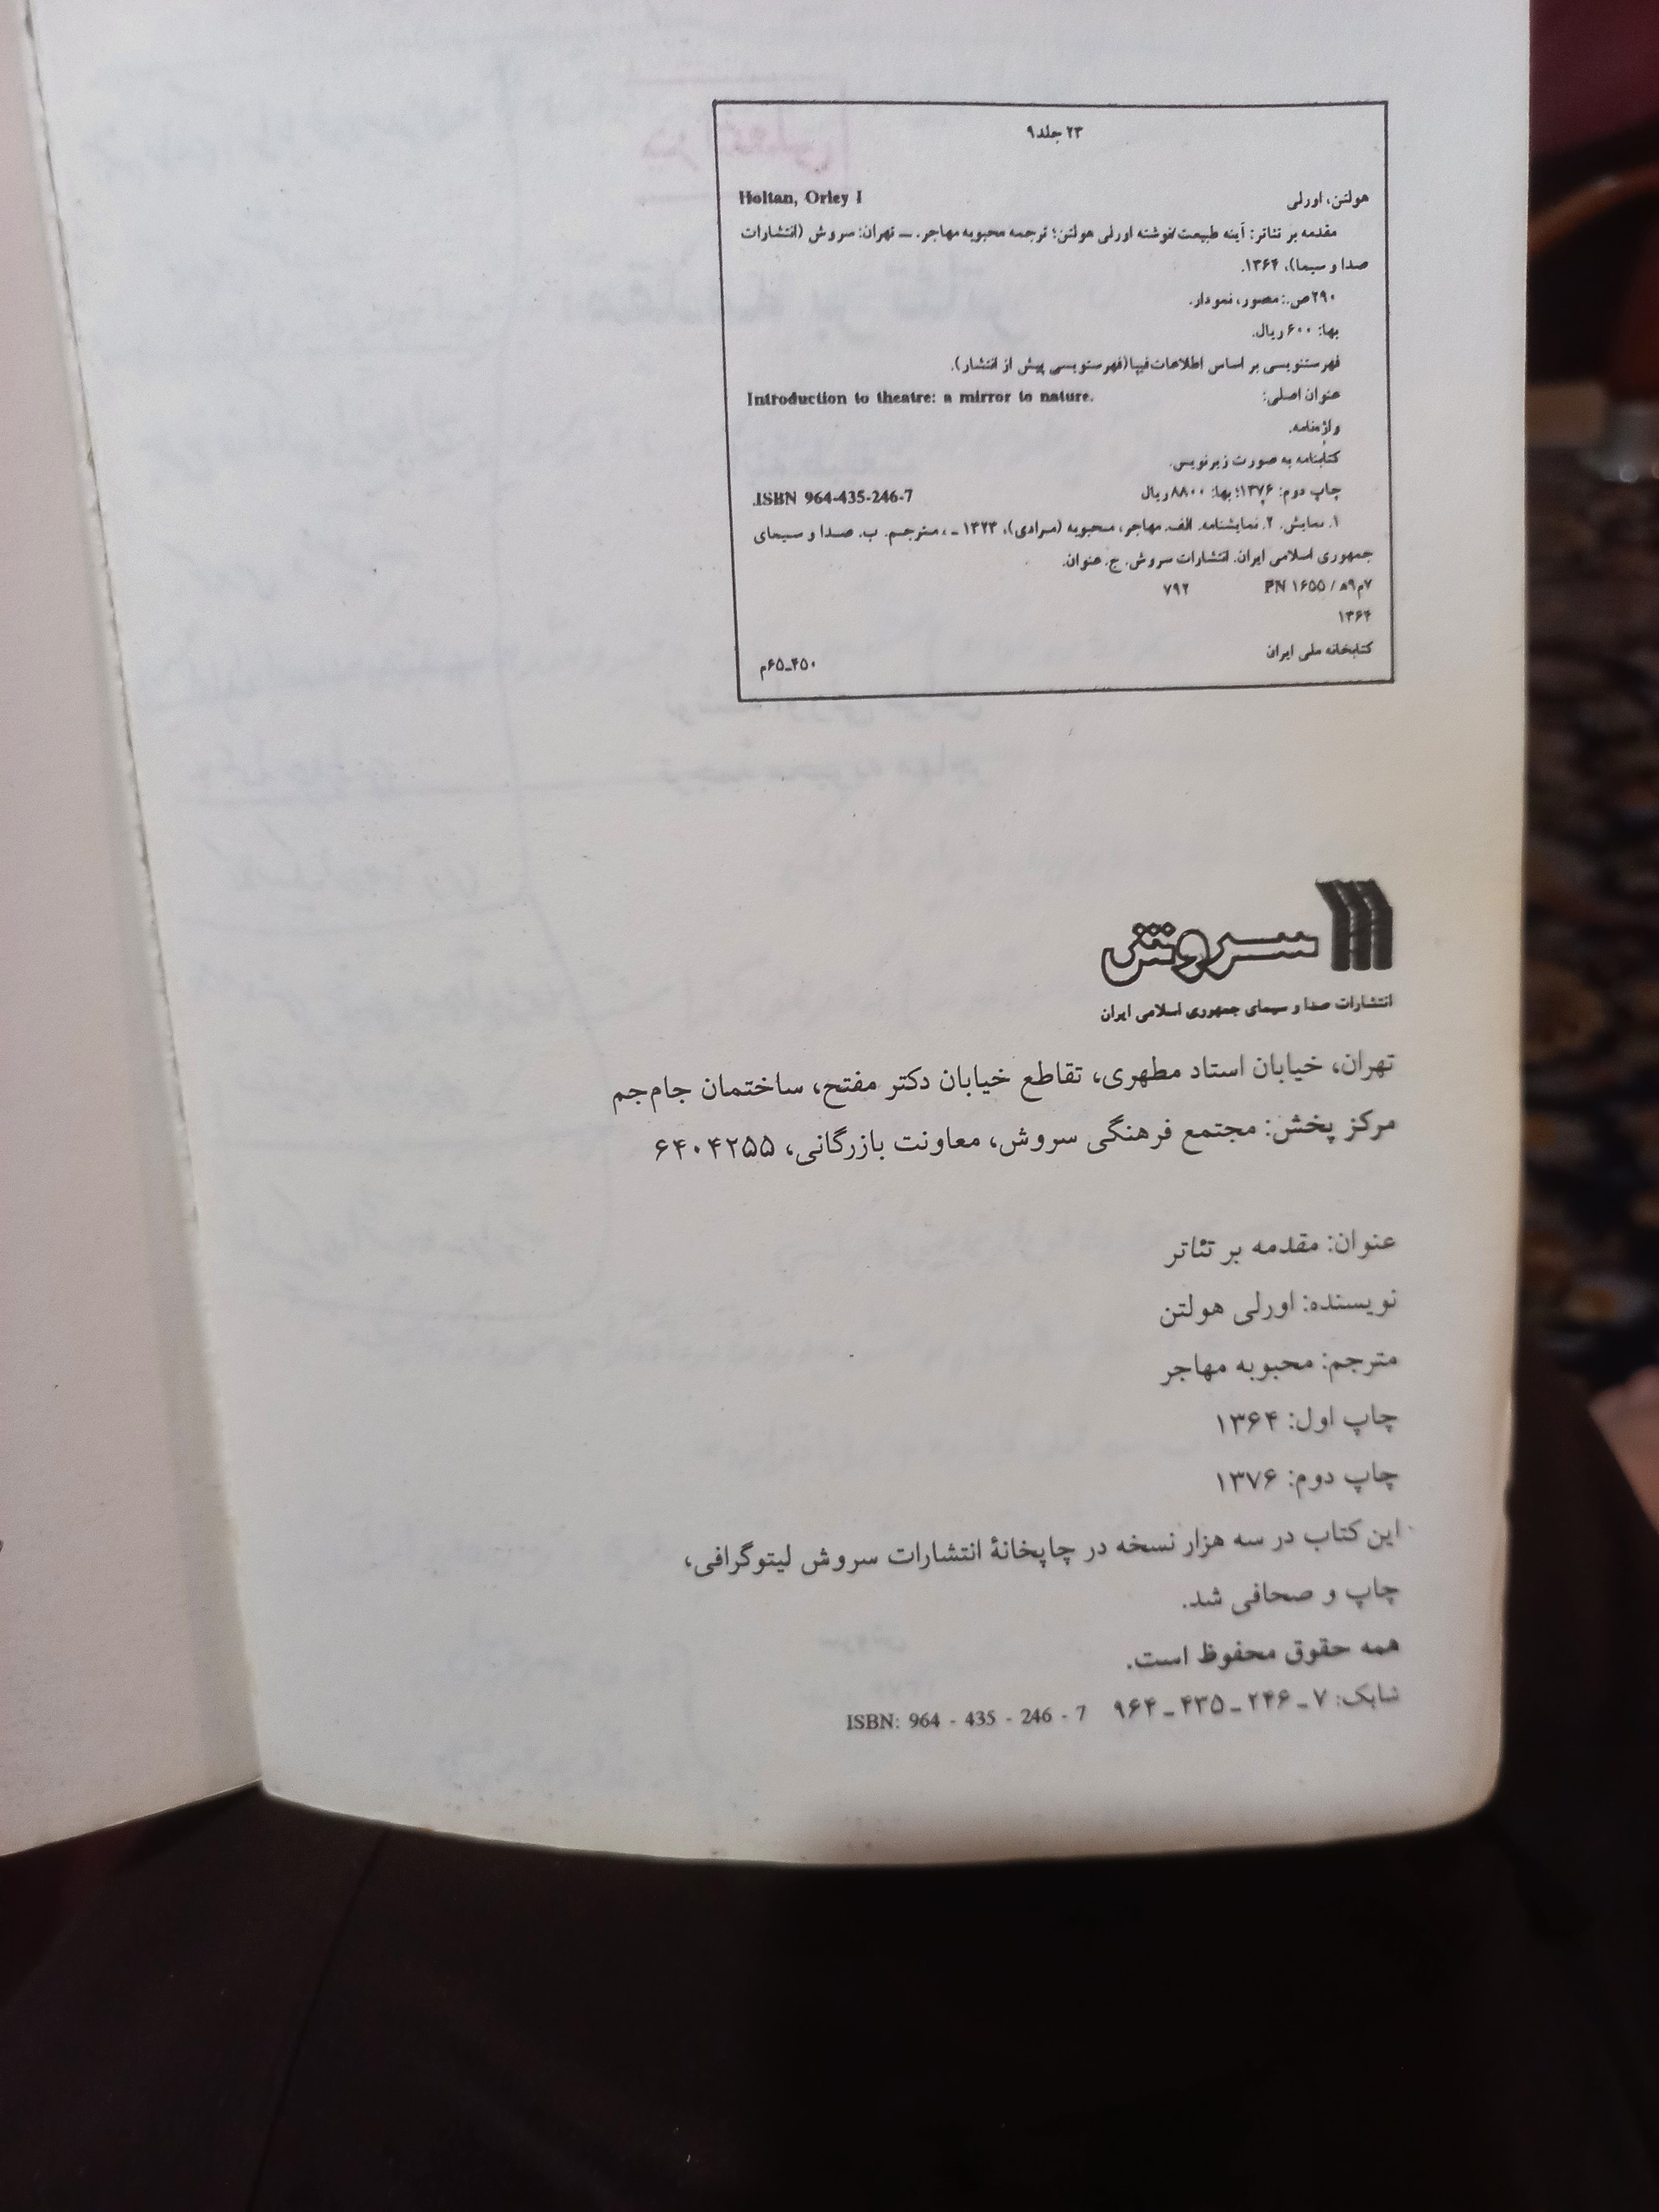 ۲۳ جلد۹
هولتن، اورلی Holtan, Orley I
مقدمه بر تئاتر: آینه طبیعت/نوشته اورلی هولتن؛ ترجمه محبوبه مهاجر. ـ تهران: سروش (انتشارات
صدا و سیما)، ۱۳۶۴.
۲۹۰ص.: مصور، نمودار.
بها: ۶۰۰ ریال.
فهرستنویسی بر اساس اطلاعات فیپا(فهرستویسی پیش از انتشار).
عنوان اصلی: Introduction to theatre: a mirror to nature.
واژه‌نامه.
کتابنامه به صورت زیرنویس.
چاپ دوم: ۱۳۷۶؛ بها: ۸۸۰۰ ریال ISBN 964-435-246-7.
۱. نمایش. ۲. نمایشنامه. الف. مهاجر، محبوبه (مرادی)، ۱۳۲۳ ـ ، مترجم. ب. صدا و سیمای
جمهوری اسلامی ایران. انتشارات سروش. ج. عنوان.
۷م۹ه‍ / PN ۱۶۵۵ ۷۹۲
۱۳۶۴
کتابخانه ملی ایران ۴۵۰ـ۶۵م
سروش
انتشارات صدا و سیمای جمهوری اسلامی ایران
تهران، خیابان استاد مطهری، تقاطع خیابان دکتر مفتح، ساختمان جام‌جم
مرکز پخش: مجتمع فرهنگی سروش، معاونت بازرگانی، ۶۴۰۴۲۵۵
عنوان: مقدمه بر تئاتر
نویسنده: اورلی هولتن
مترجم: محبوبه مهاجر
چاپ اول: ۱۳۶۴
چاپ دوم: ۱۳۷۶
این کتاب در سه هزار نسخه در چاپخانهٔ انتشارات سروش لیتوگرافی،
چاپ و صحافی شد.
همه حقوق محفوظ است.
شابک: ۷ ـ ۲۴۶ ـ ۴۳۵ ـ ۹۶۴ ISBN: 964 - 435 - 246 - 7